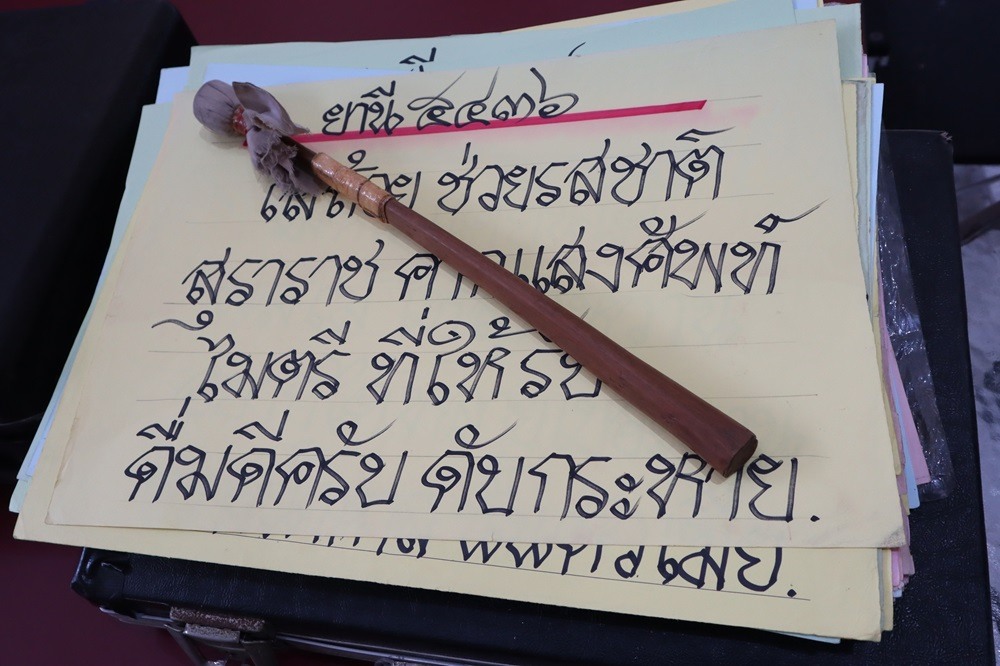 ยานี ๕๔๓๖
ช่วยรสชาติ
สราราช แสงศัพท์
ไมตรี ที่ให้รับ
ดื่มดีครับ ดับกระหาย.